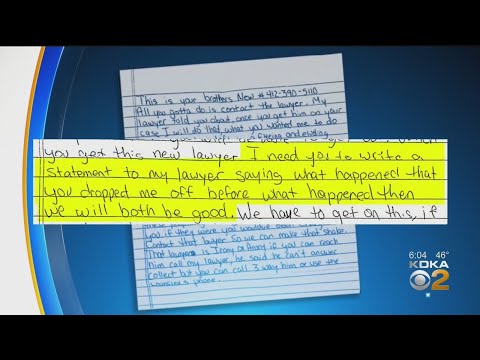 This is your brothers New # 412-390-5110
All you gotta do is contact the lawyer. My
lawyer told you that once you get him on your
case I will do that what you wanted me to do
you get this new lawyer I need you to write a
statement to my lawyer saying what happened that
you dropped me off before what happened then
we will both be good. We have to get on this, if
you if they were you wouldve
Contact that lawyer so we can make that shake.
That lawyers is if you can reach
him call my lawyer, he said he can't answer
collect but you can call 3 way him or use the
phone.
6:04 46°
KDKA
2